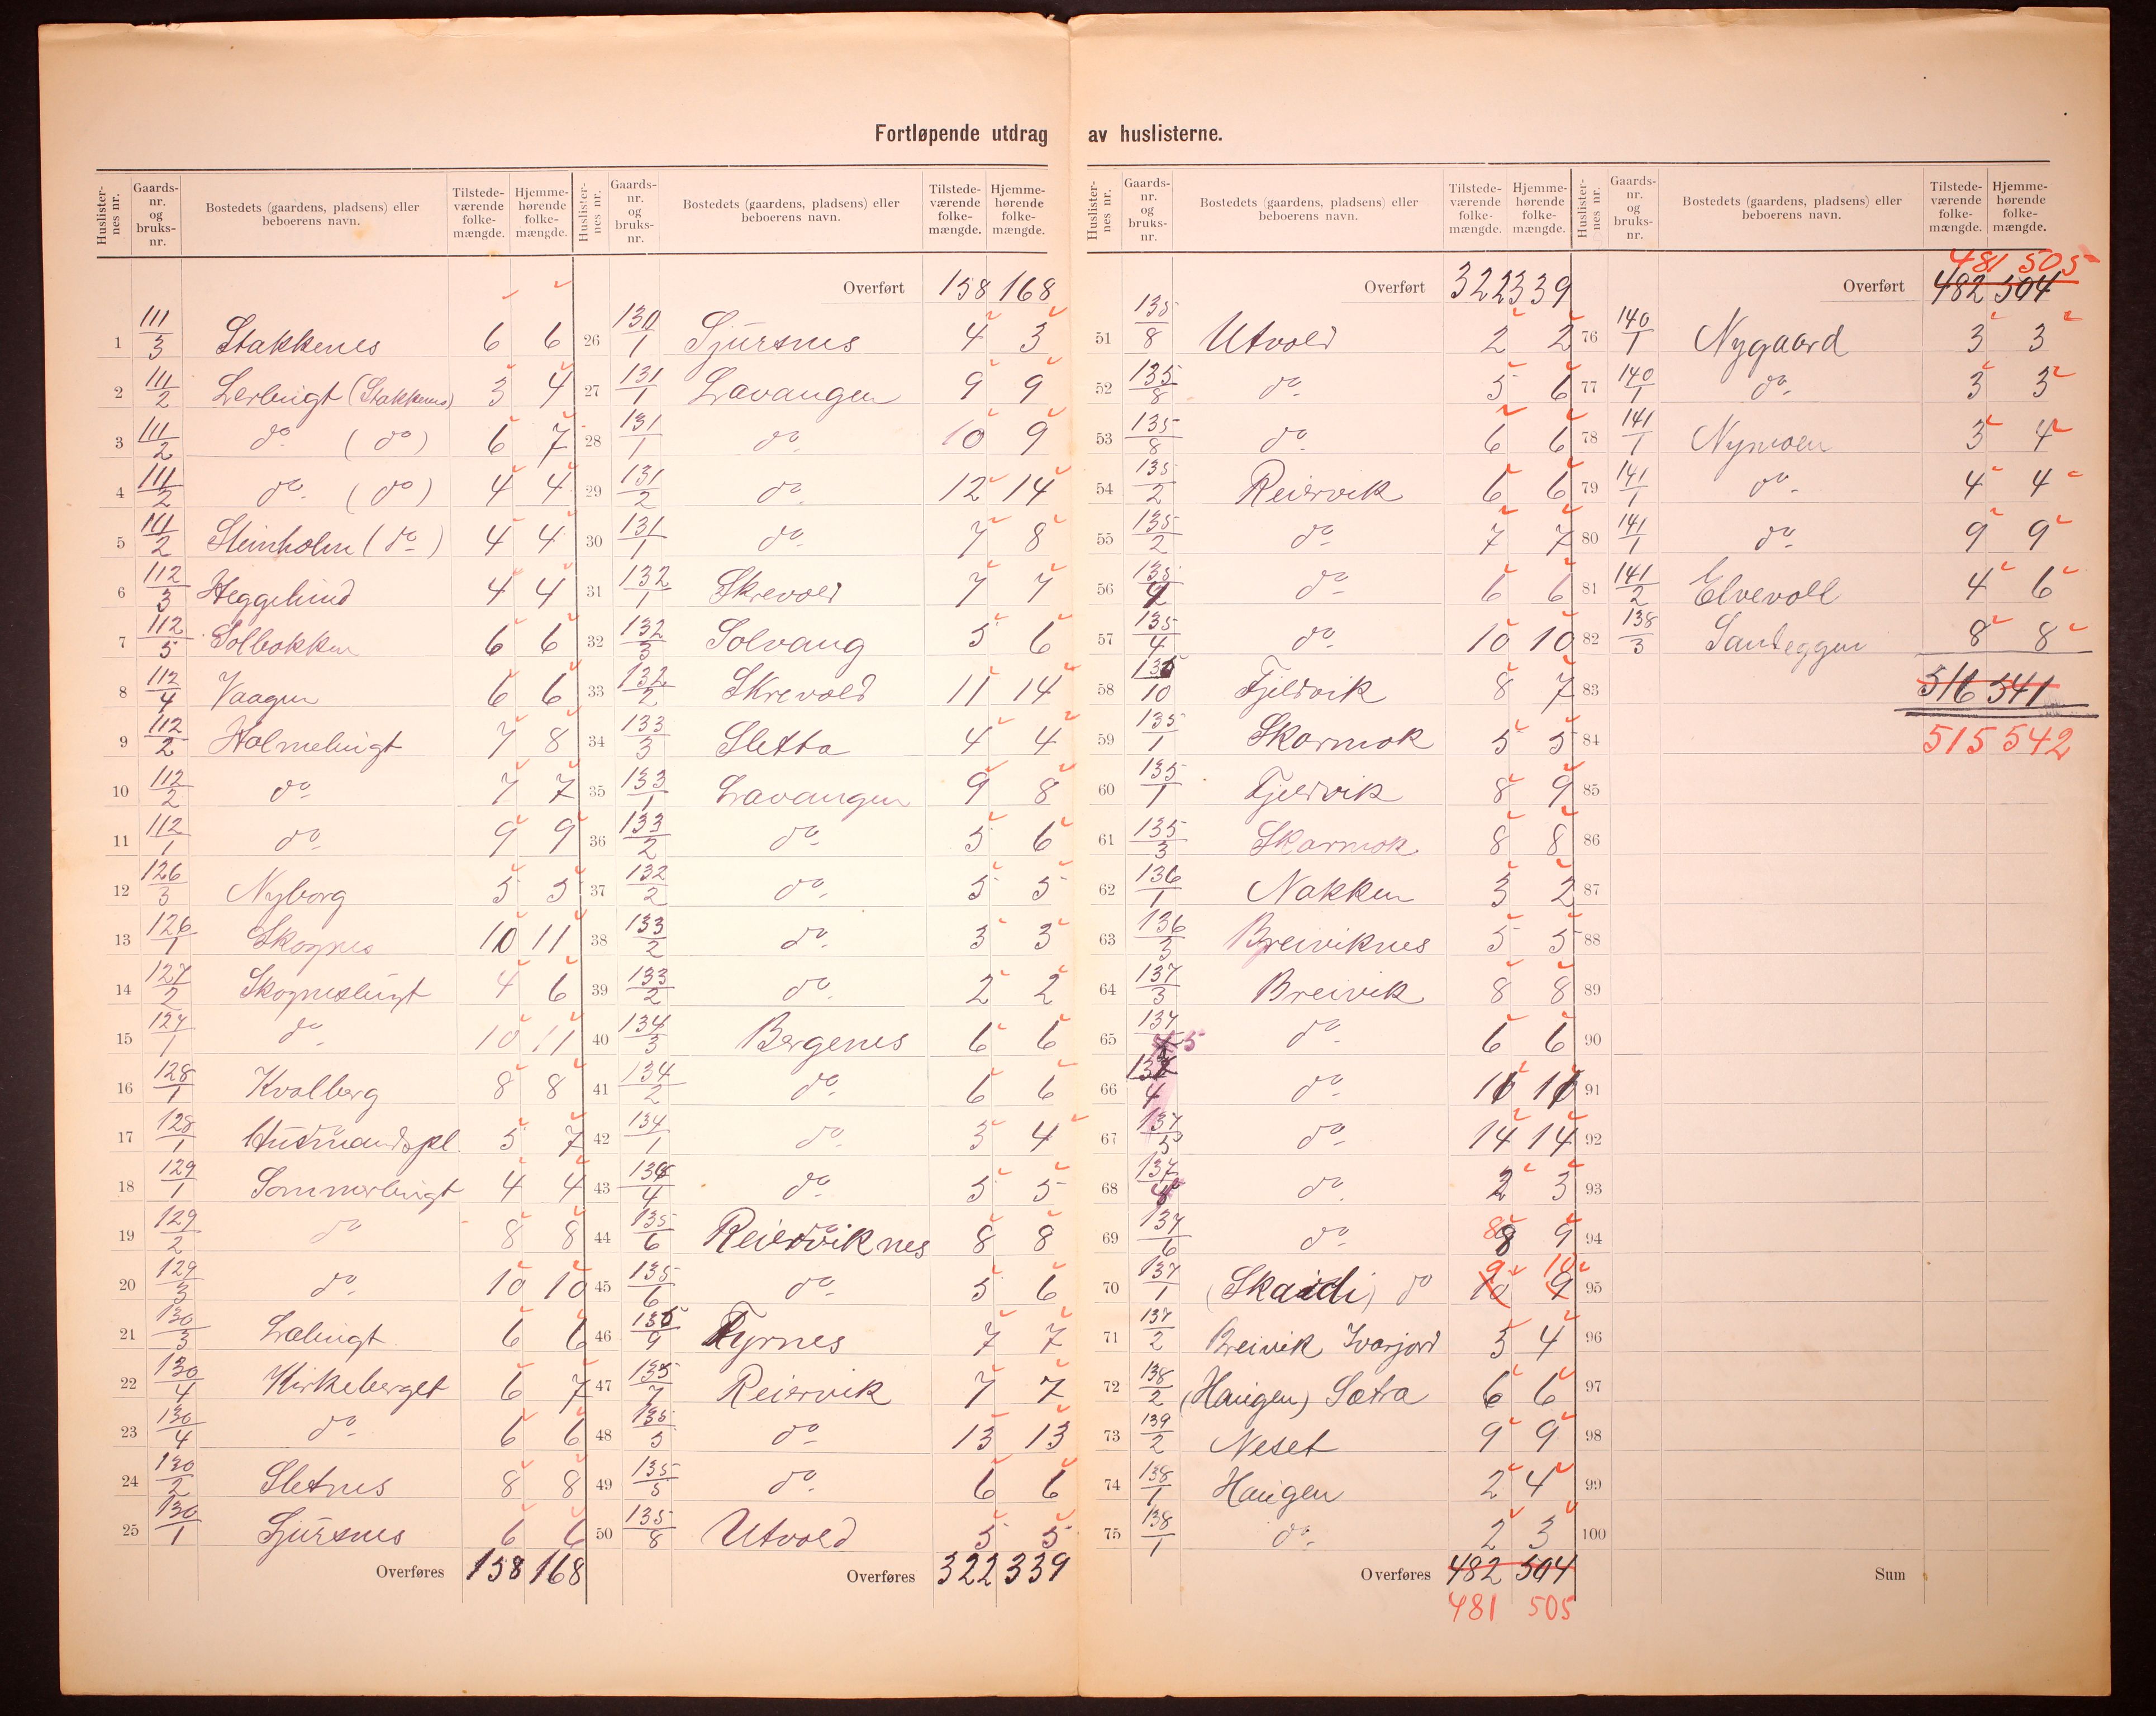 Fortløpende utdrag av huslisterne.
Huslister-nes nr. Gaards-nr. og bruks-nr. Bostedets (gaardens, pladsens) eller beboerens navn. Tilstede-værende folke-mængde. Hjemme-hørende folke-mængde.
1 111/3 Stakkenes 6 6
2 111/2 Lerbugt (Stakkenes) 3 4
3 111/2 do (do) 6 7
4 111/2 do (do) 4 4
5 111/2 Steinholm (do) 4 4
6 112/3 Heggelund 4 4
7 112/5 Solbakken 6 6
8 112/4 Vaagen 6 6
9 112/2 Holmebugt 7 8
10 112/2 do 7 7
11 112/1 do 9 9
12 126/3 Nyborg 5 5
13 126/1 Skognes 10 11
14 127/2 Skognesbugt 4 6
15 127/1 do 10 11
16 128/1 Kvalberg 8 8
17 128/1 do Husmandspl. 5 7
18 129/1 Sommerbugt 4 4
19 129/2 do 8 8
20 129/3 do 10 10
21 130/3 Labugt 6 6
22 130/4 Kirkeberget 6 7
23 130/4 do 6 6
24 130/2 Sletnes 8 8
25 130/1 Sjursnes 6 6
Overføres 158 168
Huslister-nes nr. Gaards-nr. og bruks-nr. Bostedets (gaardens, pladsens) eller beboerens navn. Tilstede-værende folke-mængde. Hjemme-hørende folke-mængde.
Overført 158 168
26 130/1 Sjursnes 4 3
27 131/1 Lavangen 9 9
28 131/1 do 10 9
29 131/2 do 12 14
30 131/1 do 7 8
31 132/1 Skrevold 7 7
32 132/3 Solvang 5 6
33 132/2 Skrevold 11 14
34 133/3 Sletta 4 4
35 133/1 Lavangen 9 8
36 133/2 do 5 6
37 132/2 do 5 5
38 133/2 do 3 3
39 133/2 do 2 2
40 134/3 Bergenes 6 6
41 134/2 do 6 6
42 134/1 do 3 4
43 134/4 do 5 5
44 135/6 Reierviknes 8 8
45 135/6 do 5 6
46 135/9 Fyrnes 7 7
47 135/7 Reiervik 7 7
48 135/5 do 13 13
49 135/5 do 6 6
50 135/8 Utvold 5 5
Overføres 322 339
Huslister-nes nr. Gaards-nr. og bruks-nr. Bostedets (gaardens, pladsens) eller beboerens navn. Tilstede-værende folke-mængde. Hjemme-hørende folke-mængde.
Overført 322 339
51 135/8 Utvold 2 2
52 135/8 do 5 6
53 135/8 do 6 6
54 135/2 Reiervik 6 6
55 135/2 do 7 7
56 135/4 do 6 6
57 135/4 do 10 10
58 135/10 Fjeldvik 8 7
59 135/1 Skarmok 5 5
60 135/1 Fjeldvik 8 9
61 135/3 Skarmok 8 8
62 136/1 Nakken 3 2
63 136/3 Breiviknes 5 5
64 137/3 Breivik 8 8
65 137/5 do 6 6
66 137/4 do 10 10
67 137/5 do 14 14
68 137/4 do 2 3
69 137/6 do 8 8 9
70 137/1 (Skaidi) do 10 9 9 10
71 137/2 Breivik Ivarjord 3 4
72 138/2 (Haugen) Sætra 6 6
73 139/2 Neset 9 9
74 138/1 Haugen 2 4
75 138/1 do 2 3
Overføres 482 504
481 505
Huslister-nes nr. Gaards-nr. og bruks-nr. Bostedets (gaardens, pladsens) eller beboerens navn. Tilstede-værende folke-mængde. Hjemme-hørende folke-mængde.
481 505
Overført 482 504
76 140/1 Nygaard 3 3
77 140/1 do 3 3
78 141/1 Nymoen 3 4
79 141/1 do 4 4
80 141/1 do 9 9
81 141/2 Elvevoll 4 6
82 138/3 Sandeggen 8 8
83 516 541
84 515 542
85
86
87
88
89
90
91
92
93
94
95
96
97
98
99
100
Sum